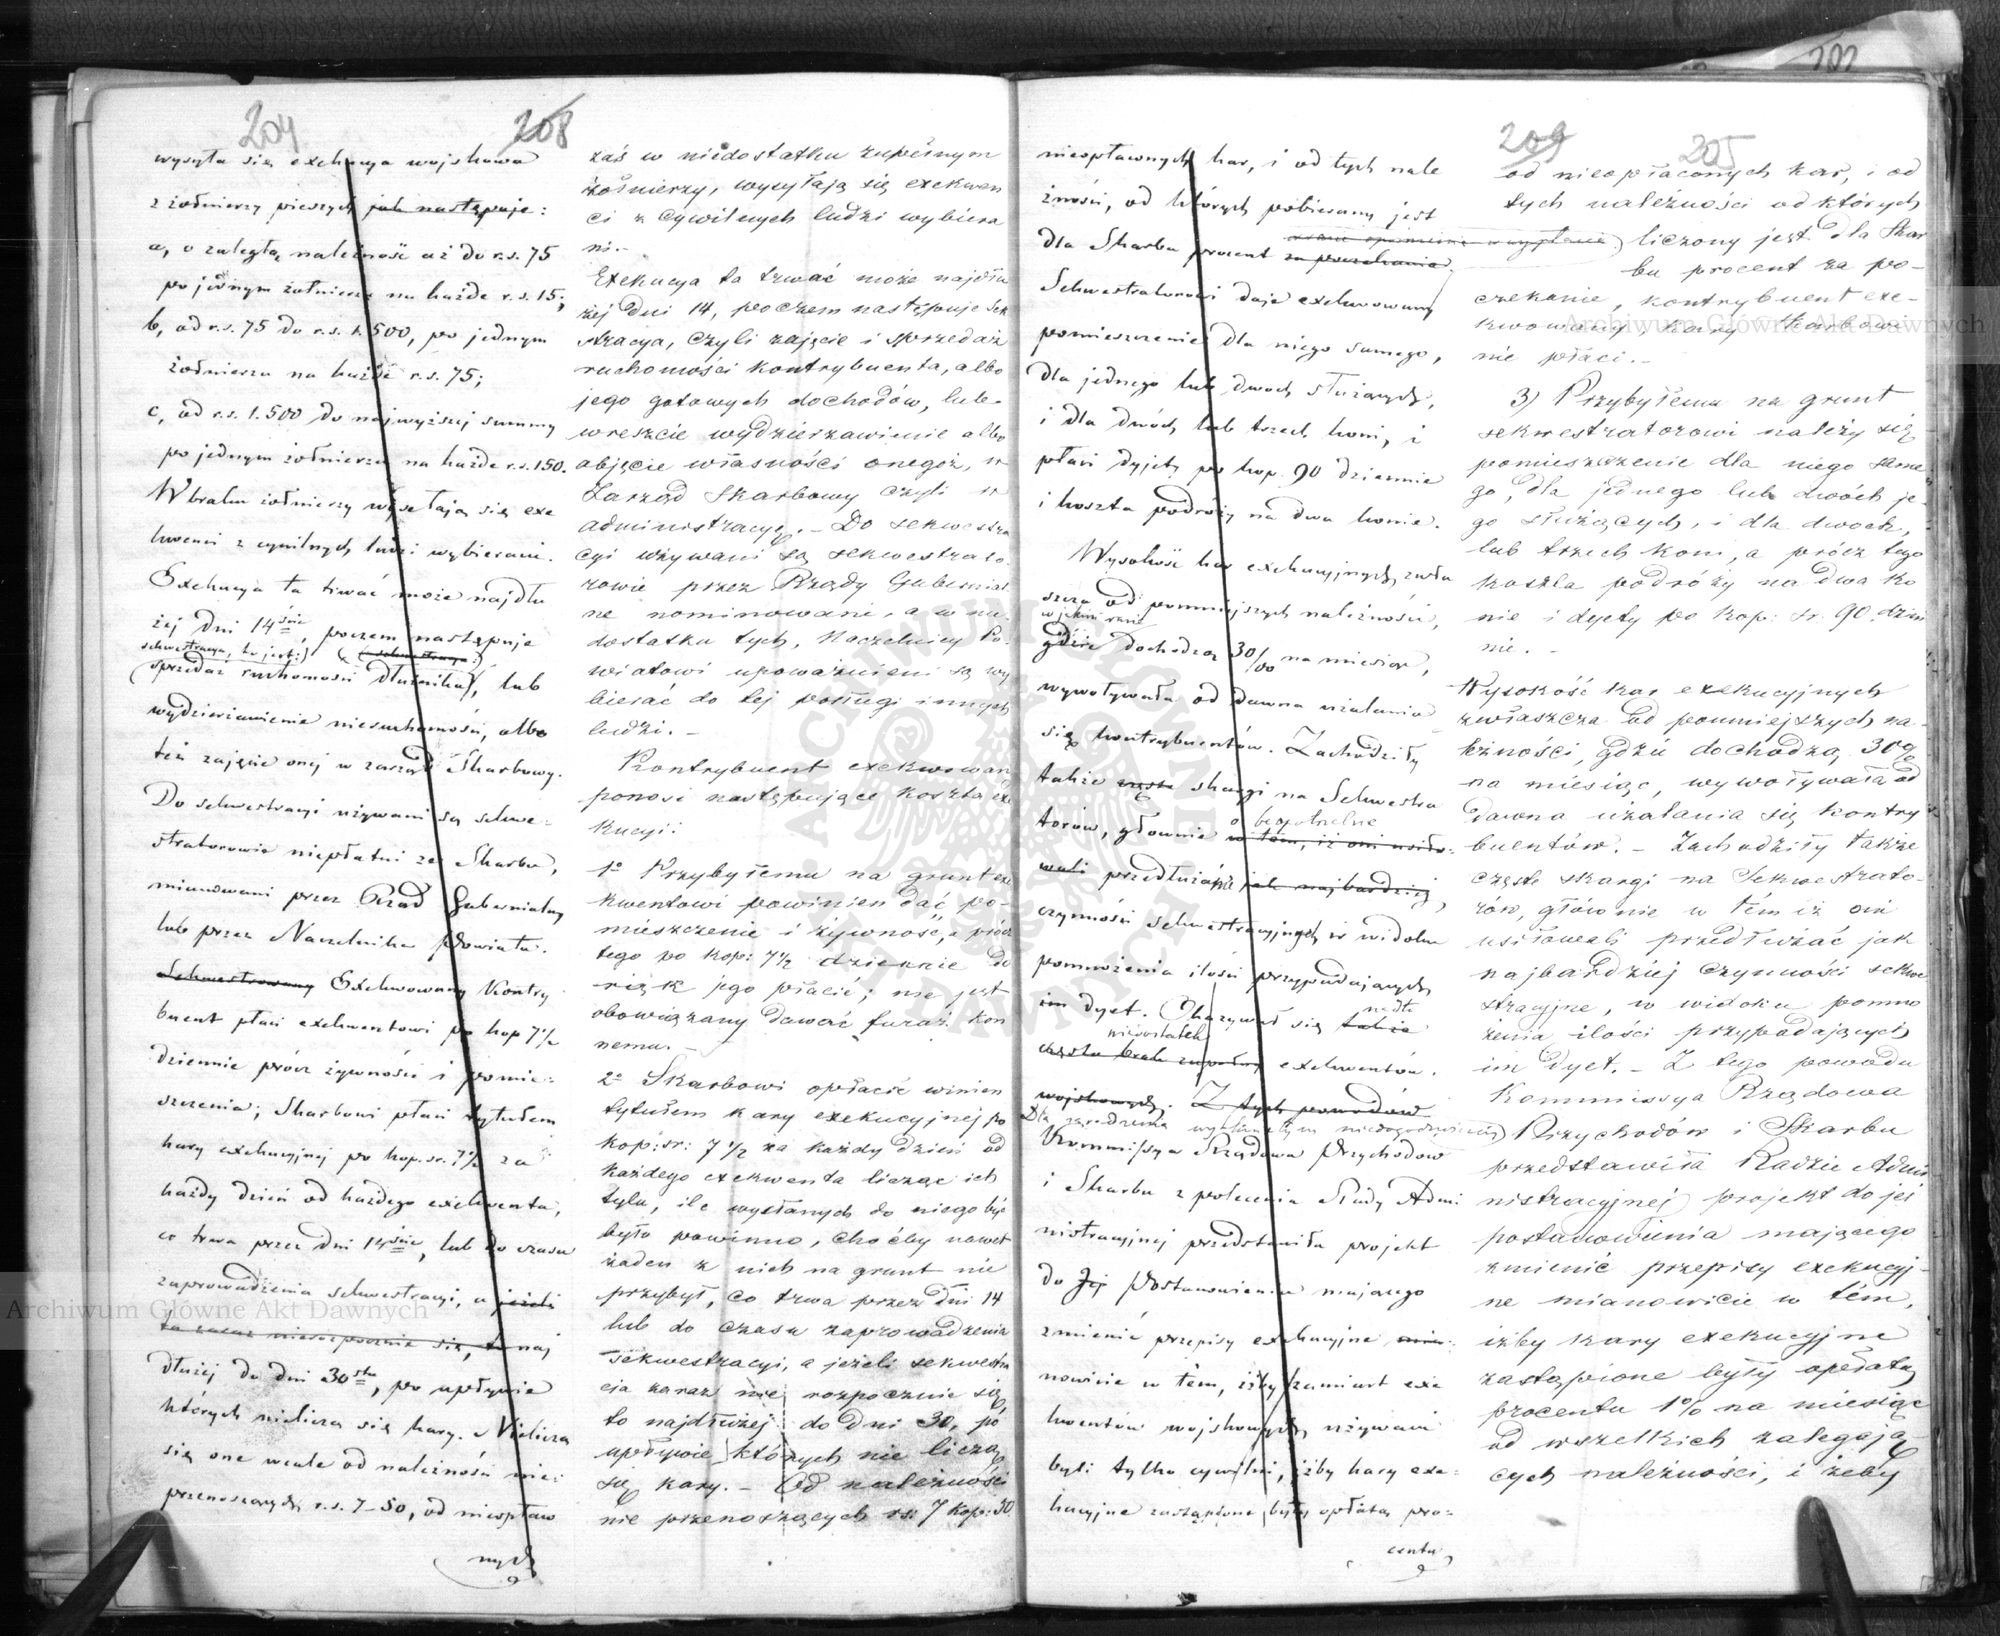 204
208
wysyła się exekucya wojskowa
z żołnierzy pieszych jak następuje:
a, o zaległą należność aż do r.s. 75
po jednym żołnierzu na każde r.s. 15;
b, od r.s. 75 do r.s. 1.500, po jednym
żołnierzu na każde r.s. 75;
c, od r.s. 1.500 do najwyższej summy
po jednym żołnierzu na każde r.s. 150.
W braku żołnierzy wysełają się exe
kwenci z cywilnych ludzi wybierani.
Exekucya ta trwać może najdłu
żej dni 14ście, poczem następuje
sekwestracya, to jest:) (sekwestracya:)
(sprzedaż ruchomości dłużnika), lub
wydzierżawienie nieruchomości, albo
też zajęcie onej w zarząd Skarbowy.
Do sekwestracyi używani są sekwe-
stratorowie niepłatni ze Skarbu,
mianowani przez Rząd Gubernialny
lub przez Naczelnika Powiatu.
Sekwestrowany Exekwowany Kontry
buent płaci exekwentowi po kop 7½
dziennie prócz żywności i pomie-
szczenia; Skarbowi płaci tytułem
kary exekucyjnej po kop. sr. 7½ za
każdy dzień od każdego exekwenta,
co trwa przez dni 14ście, lub do czasu
zaprowadzenia sekwestracyi, a jeżeli
ta zaraz nierozpocznie się, to naj
dłużej do dni 30stu, po upływie
których nieliczą się kary. Nieliczą
się one wcale od należności nie-
przenoszących r.s. 7-50, od nieopłaco
nych
zaś w niedostatku zupełnym
żołnierzy, wysyłają się exekwen
ci z cywilnych ludzi wybiera
ni.-
Exekucya ta trwać może najdłu
żej dni 14, poczem następuje sek
stracya, czyli zajęcie i sprzedaż
ruchomości kontrybuenta, albo
jego gotowych dochodów, lub-
wreszcie wydzierżawienie albo
objęcie własności onegoż, w
Zarząd Skarbowy czyli w
administracyę. - Do sekwestra
cyi używani są sekwestrato
rowie przez Rządy Gubernial
ne nominowani, a w nie-
dostatku tych, Naczelnicy Po-
wiatowi upoważnieni są wy
bierać do tej posługi innych
ludzi. -
Kontrybuent exekwowany
ponosi następujące koszta exe
kucyi:
1º Przybyłemu na grunt exe
kwentowi powinien dać po-
mieszczenie i żywność, a prócz
tego po kop: 7½ dziennie do
rąk jego płacić; nie jest
obowiązany dawać furaż kon
nemu.-
2º Skarbowi opłacić winien
tytułem kary exekucyjnej po
kop: sr: 7½ za każdy dzień od
każdego exekwenta licząc ich
tylu, ile wysłanych do niego być
było powinno, choćby nawet
żaden z nich na grunt nie
przybył, co trwa przez dni 14
lub do czasu zaprowadzenia
sekwestracyi, a jeżeli sekwestra
cja zaraz nie rozpocznie się
to najdłużej do dni 30, po
upływie których nie liczą
się kary. - Od należności
nie przenoszących rs: 7 kop: 50
202
209
205
nieopłaconych kar, i od tych nale
żności, od których pobierany jest
dla Skarbu procent za poczekanie.
Sekwestratorowi daje exekwowany
pomieszczenie dla niego samego,
dla jednego lub dwóch służących,
i dla dwóch lub trzech koni, i
płaci dyjety po kop. 90 dziennie
i koszta podróży na dwa konie.
Wysokość kar exekucyjnych, zwła
szcza od pomniejszych należności,
gdzie dochodzą 30/00 na miesiąc,
wywoływała od dawna użalania
się kontrybuentów. Zachodziły
także częste skargi na Sekwestra
o bezpotrzebne
torów, głównie w tém, iż oni usiło-
wali przedłużanie jak najbardziej
czynności sekwestracyjnych w widoku
pomnożenia ilości przypadających
im dyet. Okazywał się także nadto
niedostatek
często brak zupełny exekwentów
wojskowych. Z tych powodów
Dla zaradzenia wynikłym niedogodnościom)
Kommissya Rządowa Przychodów
i Skarbu z polecenia Rady Admi
nistracyjnej przedstawiła projekt
do Jej Postanowienia mającego
zmienić przepisy exekucyjne mia-
nowicie w tém, iżby zamiast exe
kwentów wojskowych, używani
byli tylko cywilni, iżby kary exe-
kucyjne zastąpione były opłatą pro-
centu
od nieopłaconych kar, i od
tych należności od których
liczony jest dla Skar
bu procent za po-
czekanie, kontrybuent exe-
kwowany, kary Skarbowi
nie płaci.-
3) Przybyłemu na grunt
sekwestratorowi należy się
pomieszczenie dla niego same
go, dla jednego lub dwóch je-
go służących, i dla dwóch,
lub trzech koni, a prócz tego
koszta podróży na dwa ko
nie i dyety po kop: sr. 90 dzien
nie. -
Wysokość kar exekucyjnych
zwłaszcza od pomniejszych na-
leżności, gdzie dochodzą 30%
na miesiąc, wywoływała od
dawna użalania się kontry
buentów. - Zachodziły także
częste skargi na Sekwestrato-
rów, głównie w tém iż oni
usiłowali przedłużać jak
najbardziej czynności sekwe
stracyjne, w widoku pomno
żenia ilości przypadających
im dyet. - Z tego powodu
Kommissya Rządowa
Przychodów i Skarbu
przedstawiła Radzie Admi
nistracyjnej projekt do jej
postanowienia mającego
zmienić przepisy exekucyj-
ne mianowicie w tém,
iżby kary exekucyjne
zastąpione były opłatą
procentu 1% na miesiąc
od wszelkich zalegają-
cych należności, i żeby
Archiwum Główne Akt Dawnych
Archiwum Główne Akt Dawnych